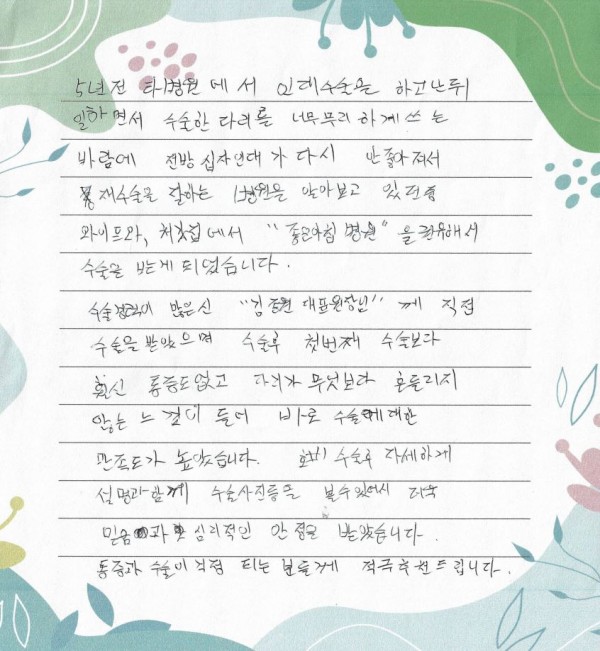 5년전 타병원에서 인대수술을 하고난뒤
일하면서 수술한 다리를 너무무리하게쓰는
바람에 전방 십자인대가 다시 안좋아져서
재수술을 잘하는 병원을 알아보고 있던중
와이프와, 처갓집에서 "좋은아침 병원"을 권유해서
수술을 받게 되었습니다.
수술경력이 많은신 "김 원 대표원장님"께 직접
수술을 받았으며 수술후 첫번째 수술보다
훨신 통증도없고 다리가 무엇보다 흔들리지
않는 느낌이 들어 바로 수술에대한
만족도가 높았습니다. 수술후 자세하게
설명과함께 수술사진등을 볼수있어서 더욱
믿음과 심리적인 안정을 받았습니다.
통증과 수술이 걱정 되는 분들께 적극추천드립니다.